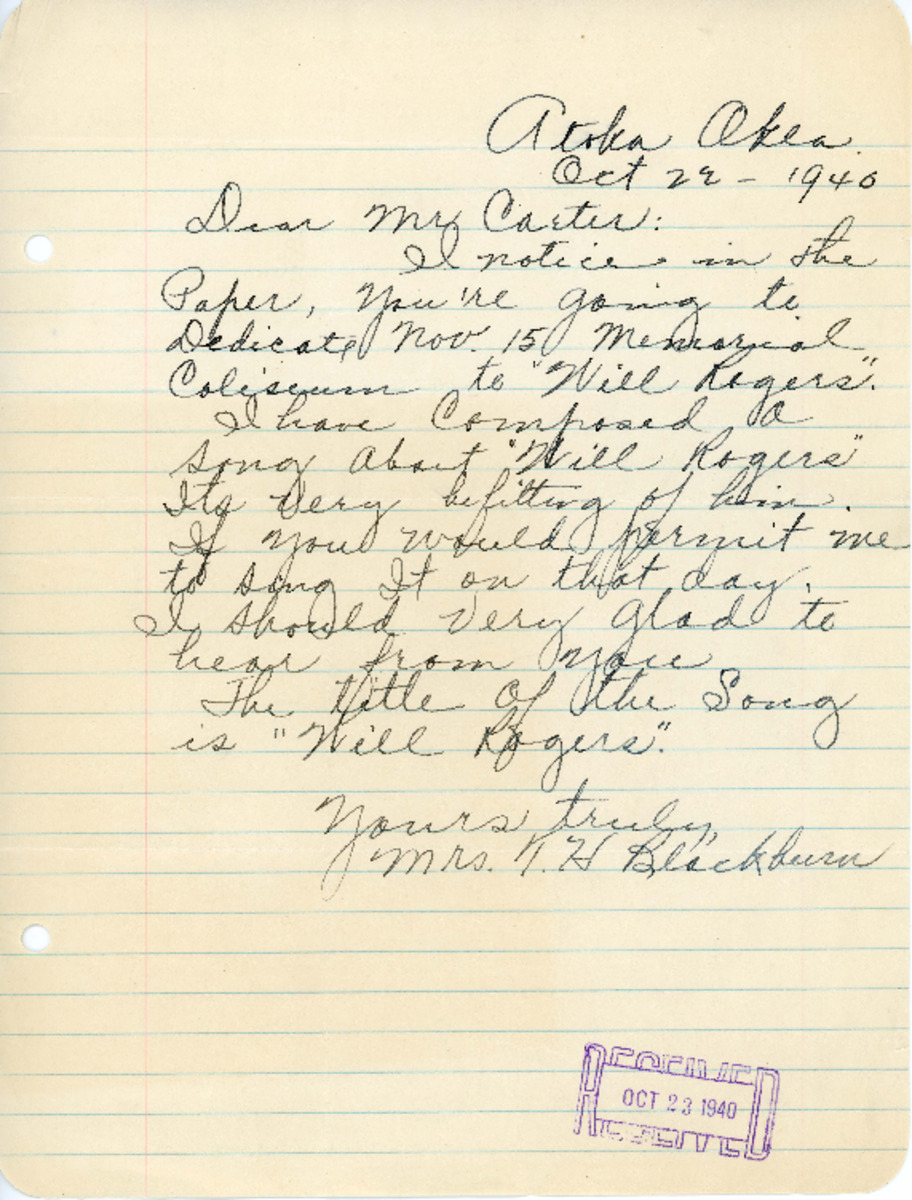 Atoka Okla.
Oct 22 - 1940
Dear Mr. Carter:
I notice in the
Paper, You're going to
Dedicate Nov. 15 Memorial
Coliseum to "Will Rogers".
I have Composed a
song About "Will Rogers"
Its Very befitting of him.
If you would permit me
to sing It on that day.
I should Very Glad to
hear from you
The title Of the Song
is "Will Rogers".
Yours truly,
Mrs. T. H Blackburn
RECEIVED
OCT 23 1940
RECEIVED